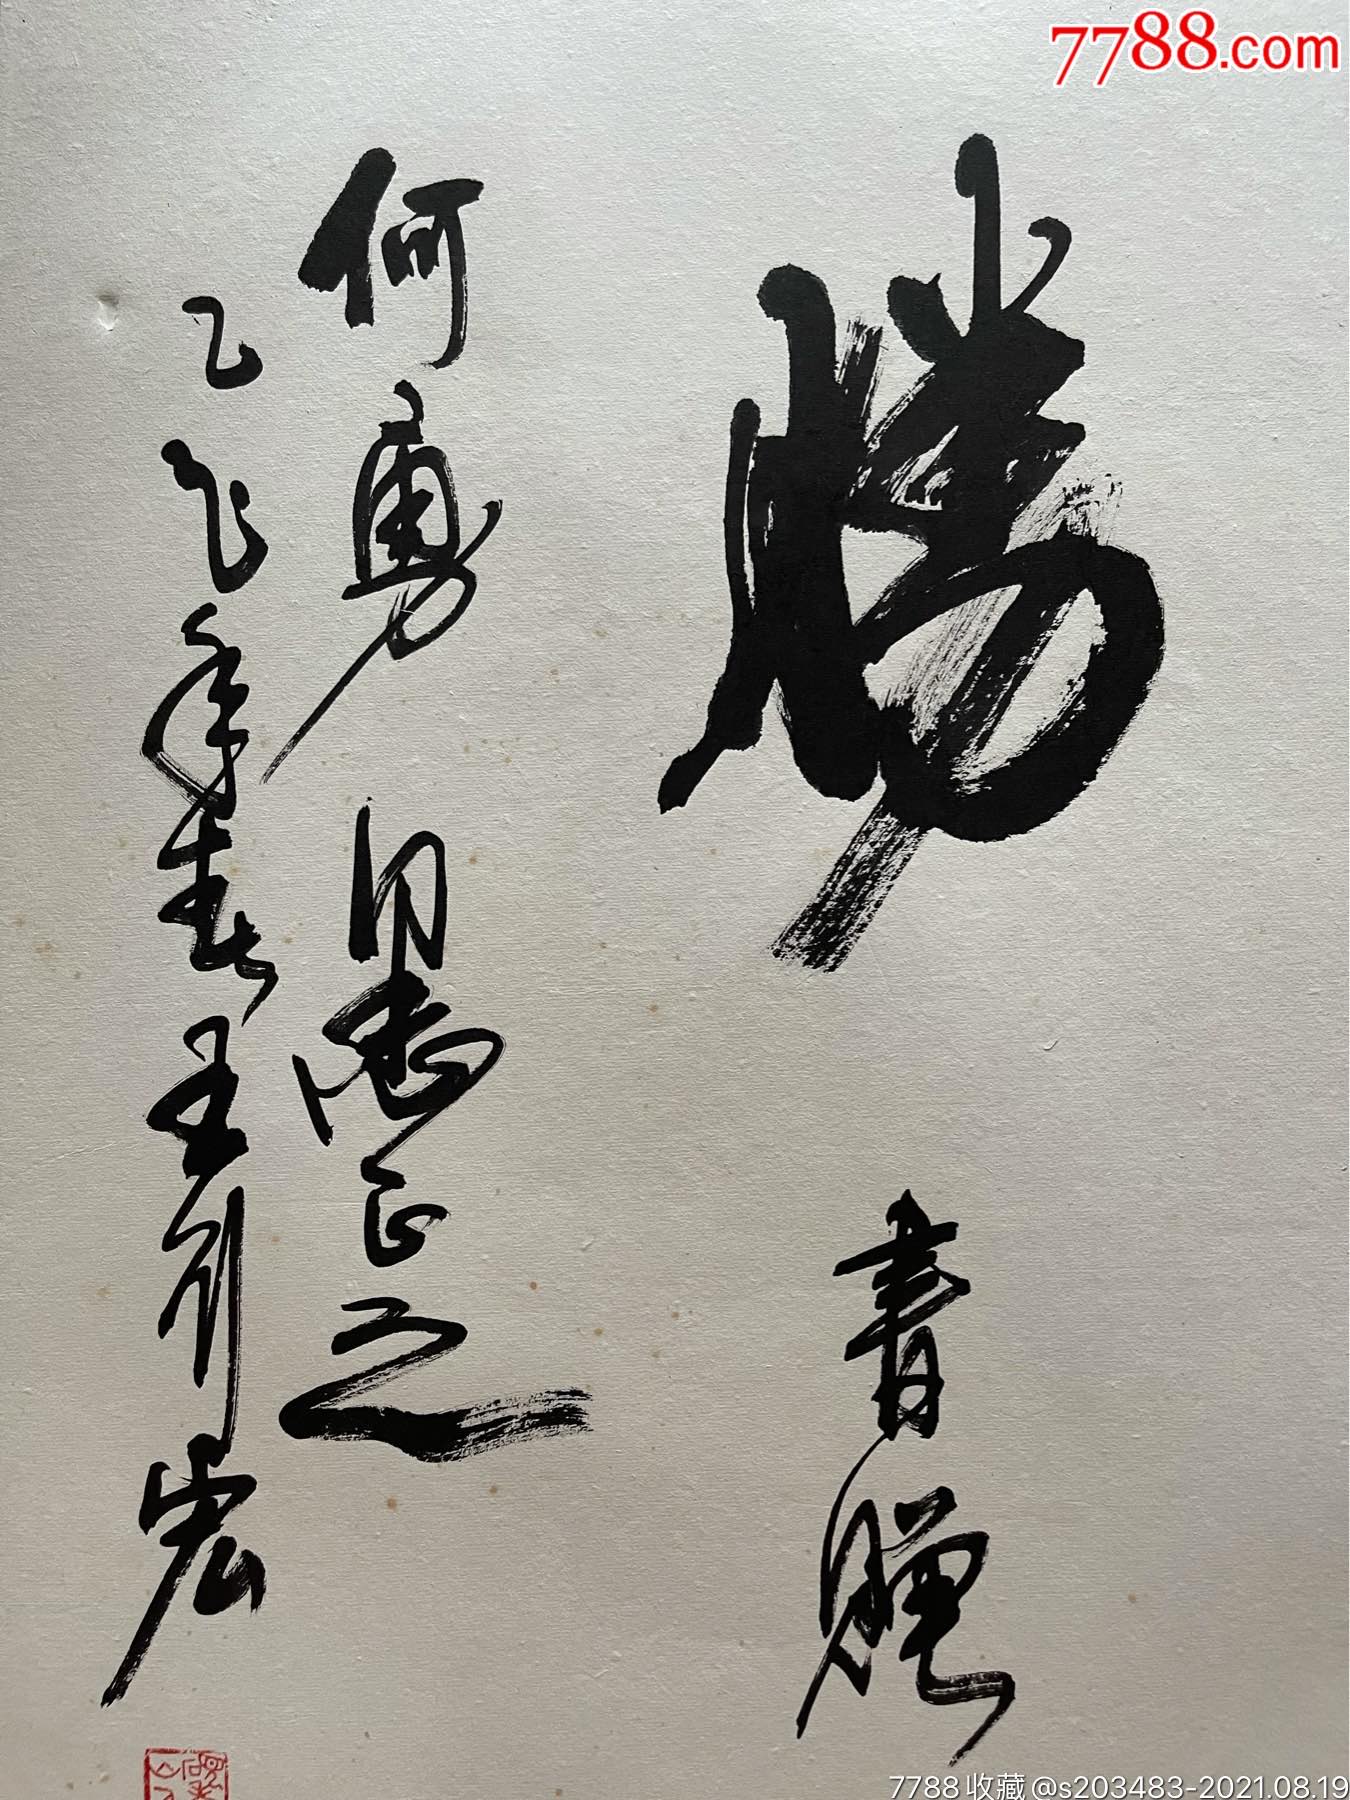 7788.com
勝
書贈
何勇同志正之
乙年春王
7788收藏@s203483-2021.08.19